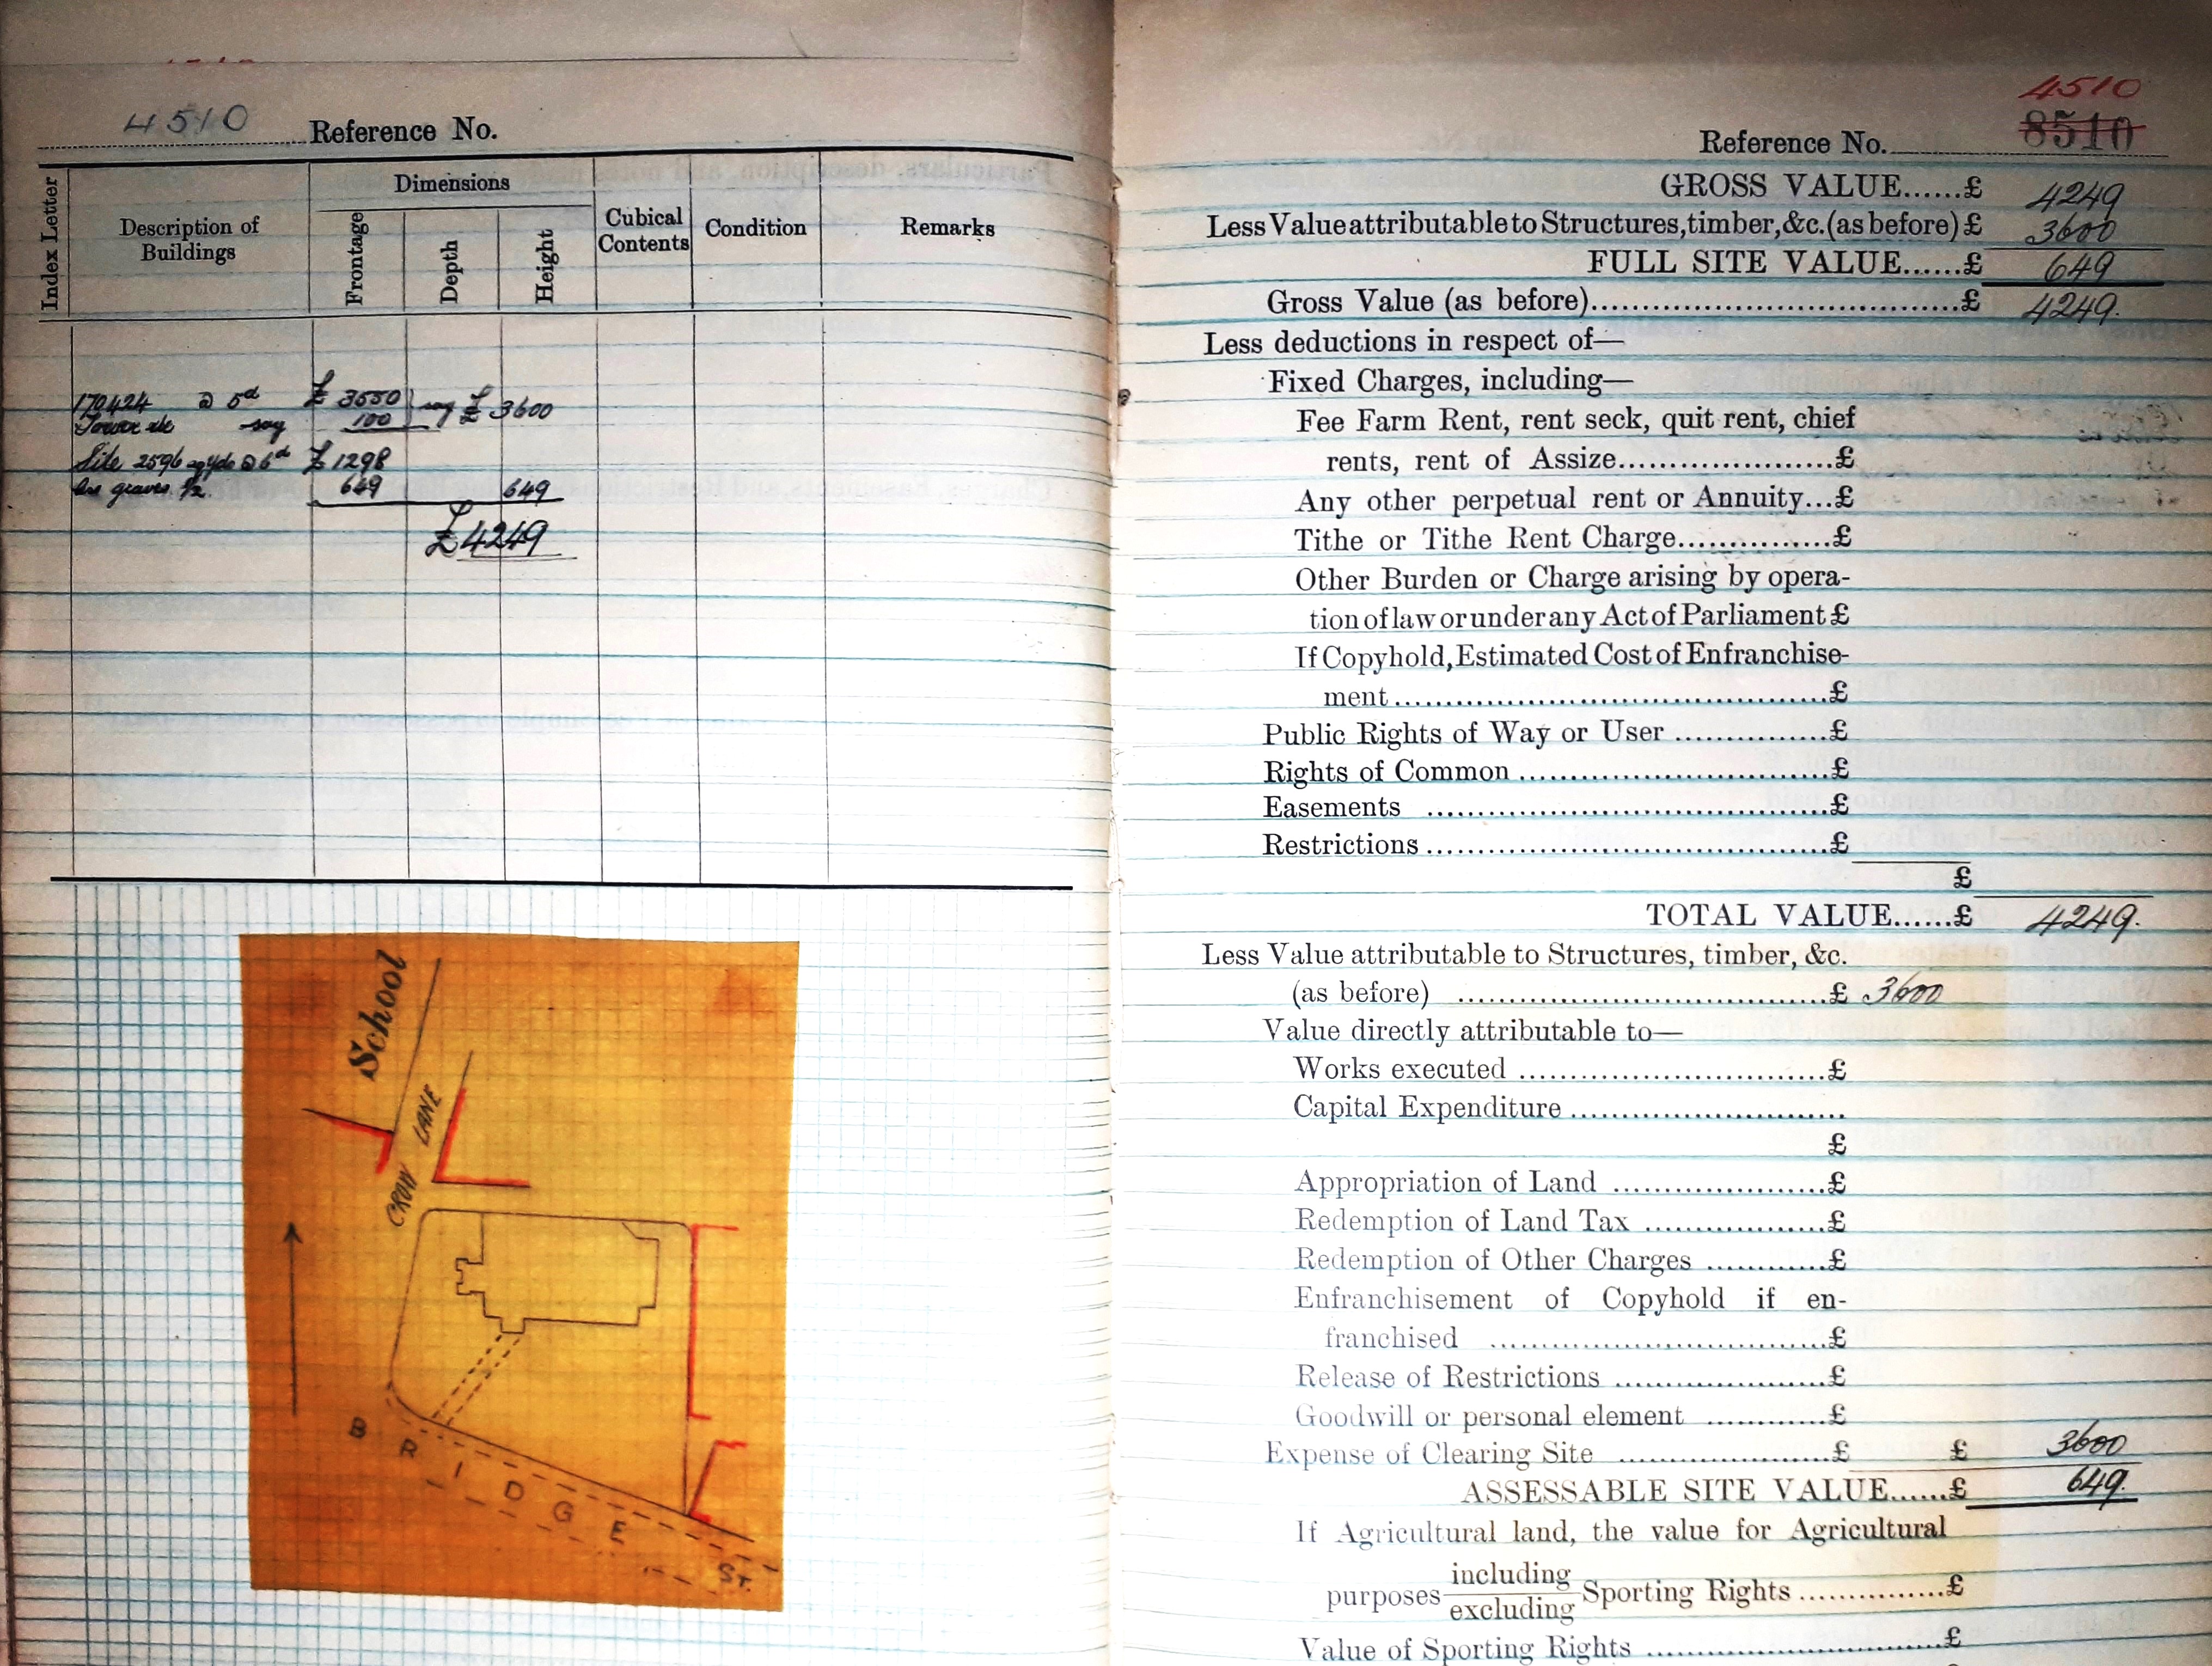 4510 Reference No.
Index Letter
Description of Buildings
Dimensions
Frontage
Depth
Height
Cubical Contents
Condition
Remarks
170424 @ 5d £ 3550 say £ 3600
Tower etc say 100
Site 2596 sq yds @ 6d £ 1298
graves 1/2. 649 649
£4249
School
CROW LANE
BRIDGE ST.
4510
Reference No. 8510
GROSS VALUE......£ 4249
Less Value attributable to Structures, timber, &c. (as before) £ 3600
FULL SITE VALUE......£ 649
Gross Value (as before)..........£ 4249.
Less deductions in respect of—
Fixed Charges, including—
Fee Farm Rent, rent seck, quit rent, chief
rents, rent of Assize..........£
Any other perpetual rent or Annuity...£
Tithe or Tithe Rent Charge..........£
Other Burden or Charge arising by opera-
tion of law or under any Act of Parliament £
If Copyhold, Estimated Cost of Enfranchise-
ment..........£
Public Rights of Way or User ..........£
Rights of Common ..........£
Easements ..........£
Restrictions ..........£
£
TOTAL VALUE......£ 4249.
Less Value attributable to Structures, timber, &c.
(as before) ..........£ 3600
Value directly attributable to—
Works executed ..........£
Capital Expenditure ..........
£
Appropriation of Land ..........£
Redemption of Land Tax ..........£
Redemption of Other Charges ..........£
Enfranchisement of Copyhold if en-
franchised ..........£
Release of Restrictions ..........£
Goodwill or personal element ..........£
Expense of Clearing Site ..........£ £ 3600
ASSESSABLE SITE VALUE......£ 649.
If Agricultural land, the value for Agricultural
purposes including excluding Sporting Rights ..........£
Value of Sporting Rights ..........£